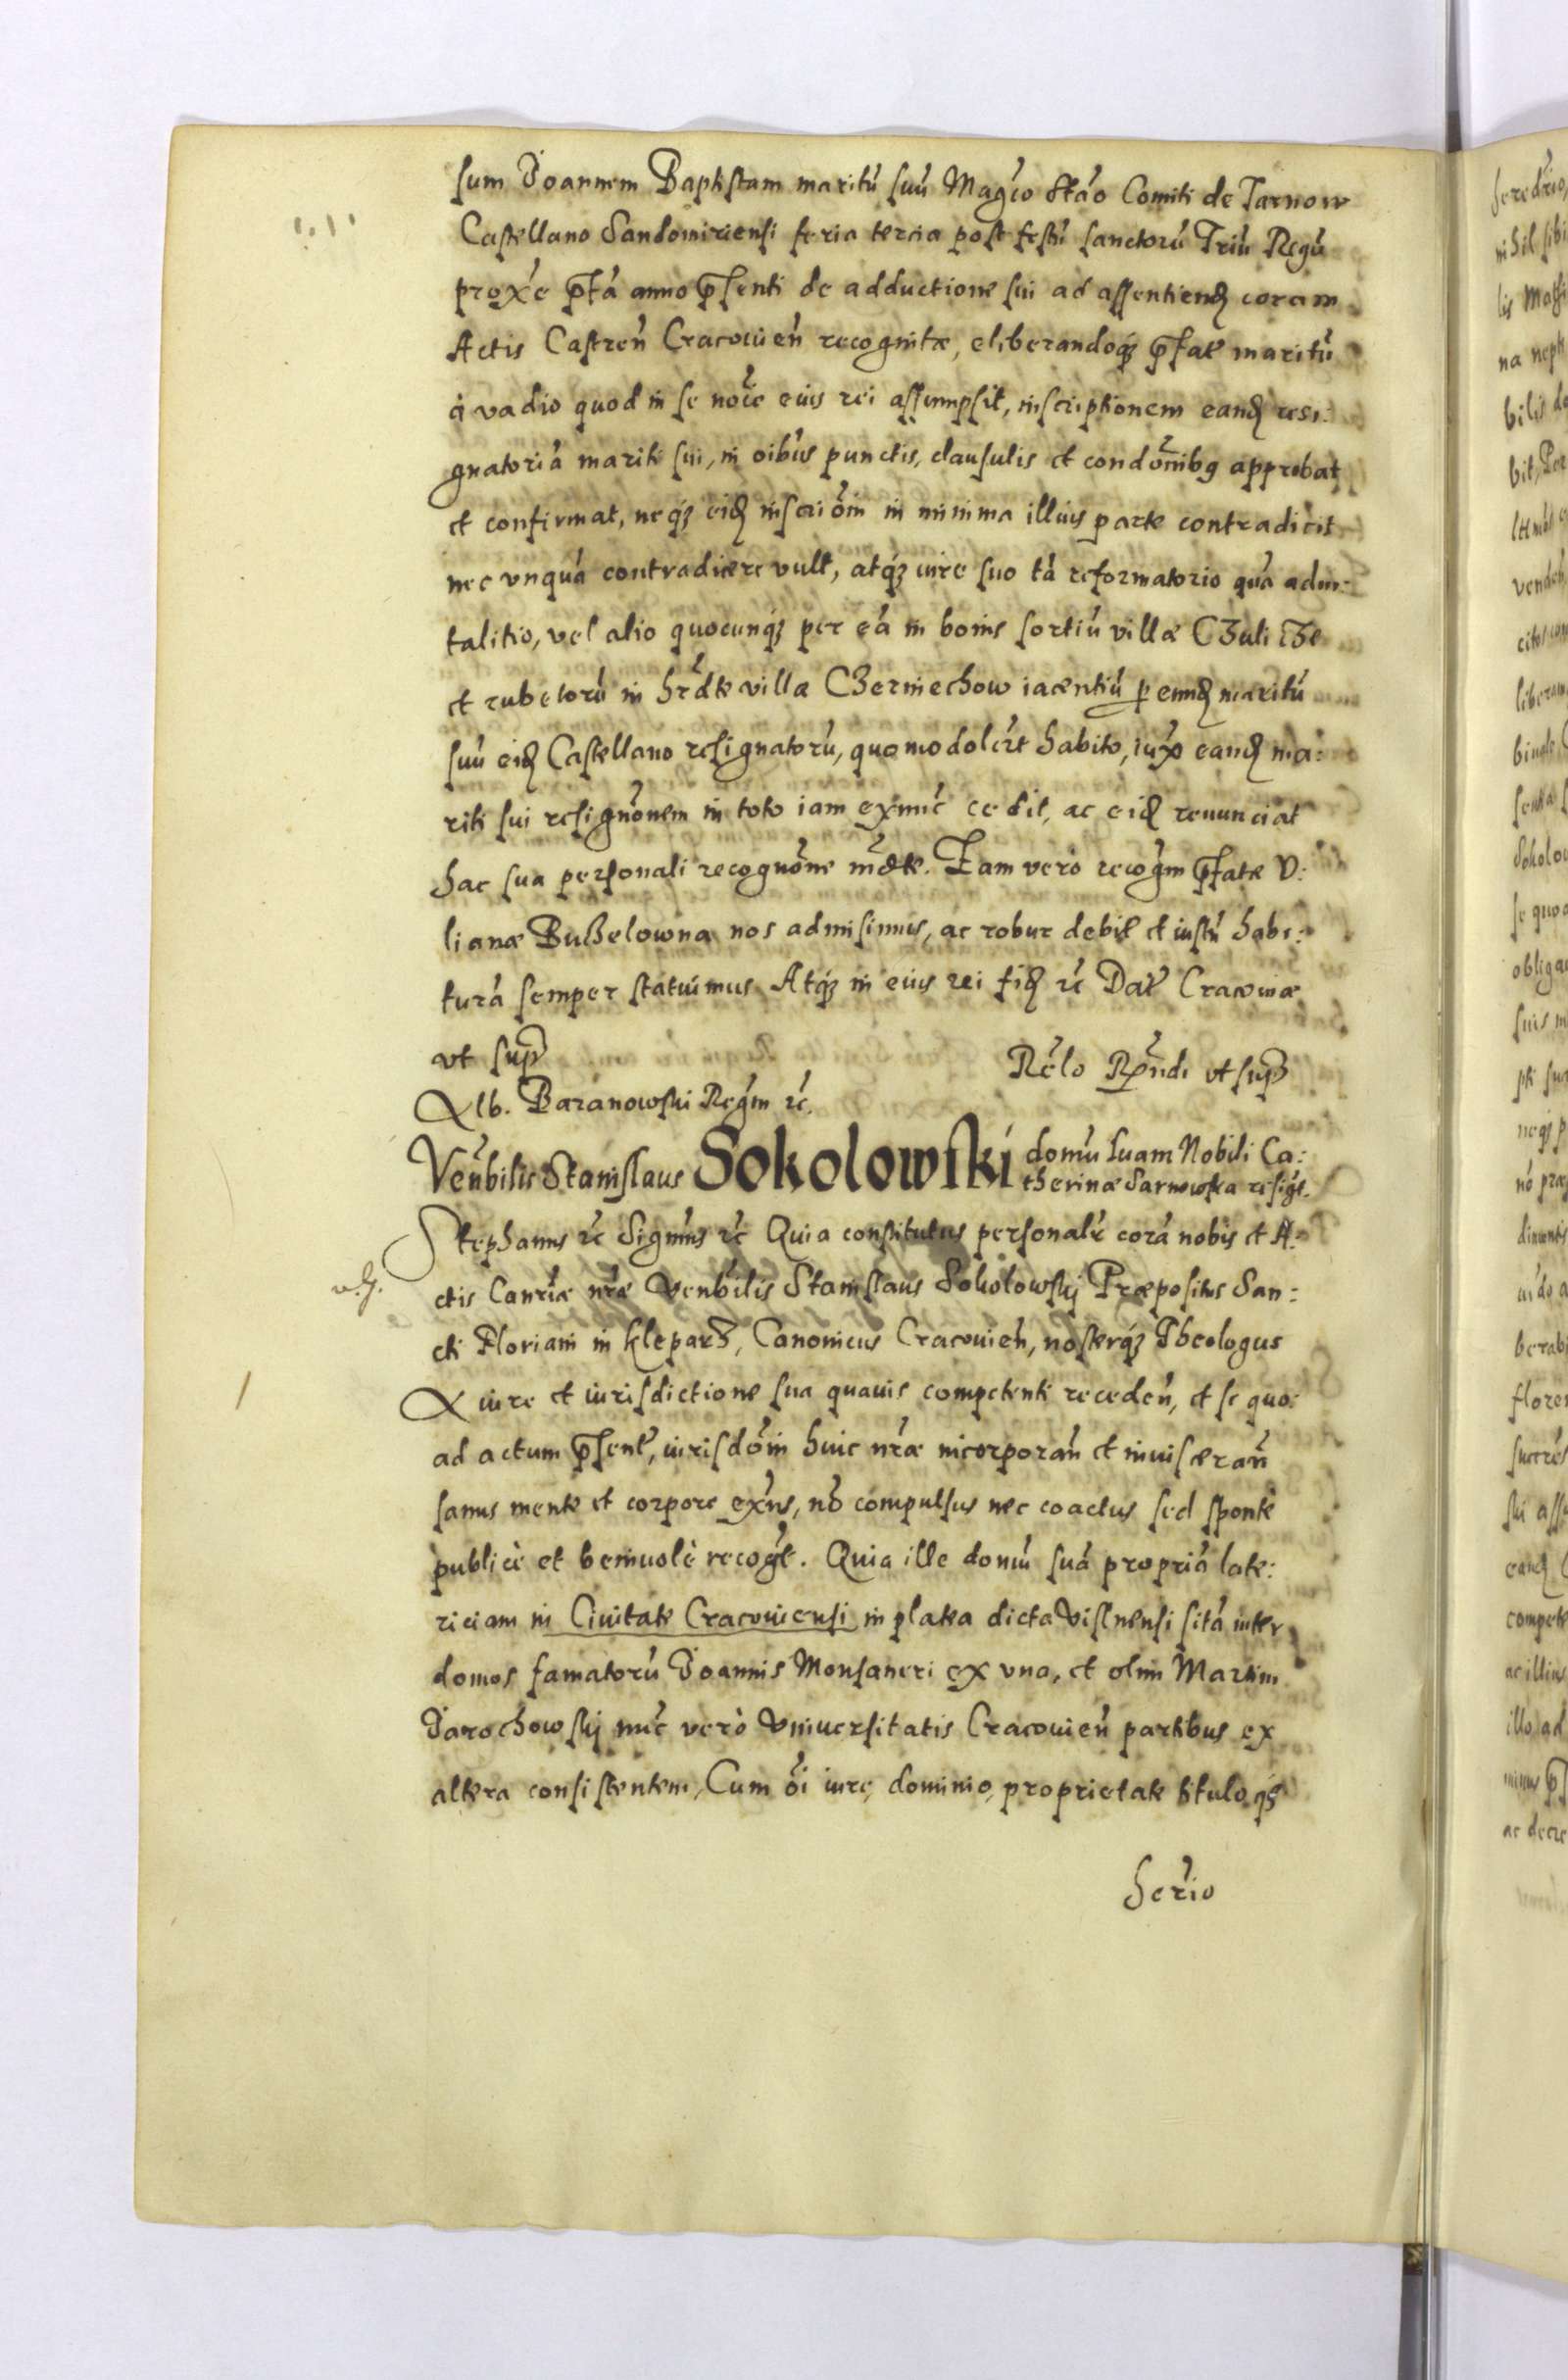 sum Joannem Baptistam maritū suū Magco Stāo Comiti de Tarnow
Castellano Sandomiriensi feria tercia post festū sanctorū Triū Regū
proxe p̄ta anno p̄senti de adductione sui ad assentiendꝫ coram
Actis Castren̄ Cracouien̄ recognitæ, eliberandoqꝫ p̄fat maritū
à vadio quod in se noīe eius rei assumpsit, inscriptionem eandꝫ resi:
gnatoriā mariti sui, in oibus punctis, clausulis et condōnibꝫ approbat
et confirmat, neqꝫ eidꝫ inscriōni in minima illius parte contradicit
nec vnquā contradicere vult, atqꝫ iure suo tā reformatorio quā aduı:
talitio, vel alio quocunqꝫ per eā in bonis sortiū villæ Czulicze
et rubetorū in hrdte villæ Czerniechow iacentiū p eundꝫ maritū
suū eidꝫ Castellano resignatorū, quomodolibt habito, iuxa eandꝫ ma:
riti sui resignōnem in toto iam exnunc cedit, ac eidꝫ renunciat
hac sua personali recognōne mdte. Eam vero recogm p̄fatæ V:
lianæ Buszelowna nos admisimus, ac robur debit et iustū habi:
turā semper statuimus. Atqꝫ in eius rei fidꝫ rc̄ Dat Cracouiæ
vt sup
Relo Rpndi vt sup
Alb. Baranowski Regm rc̄.
Venbilis Stanislaus Sokolowski domū suam Nobili Ca:
therinæ Sarnowska resigt.
Stephanus rc̄ Signms rc̄ Quia constitutus personalr corā nobis et A:
ctis Canriæ nræ Venbilis Stanislaus Sokolowskj Præpositus San:
cti Floriani in Kleparz, Canonicus Cracouien̄, nosterqꝫ Theologus
A iure et iurisdictione sua quauis competenti receden̄, et se quo:
ad actum p̄sent, iurisdōni huic nræ incorporan̄ et inuisceran̄
sanus mente et corpore exns, nō compulsus nec coactus sed sponte
publicè et beniuolè recogt. Quia ille domū suā propriā late:
riciam in Ciuitate Cracouiensi in platea dicta Vislnensi sitā inter
domos famatorū Joannis Monsaneri ex vna, et olim Martini
Jarochowskj nunc verò Vniuersitatis Cracouien̄ partibus ex
altera consistentem, Cum ōi iure, dominio, proprietate tituloqꝫ
herio